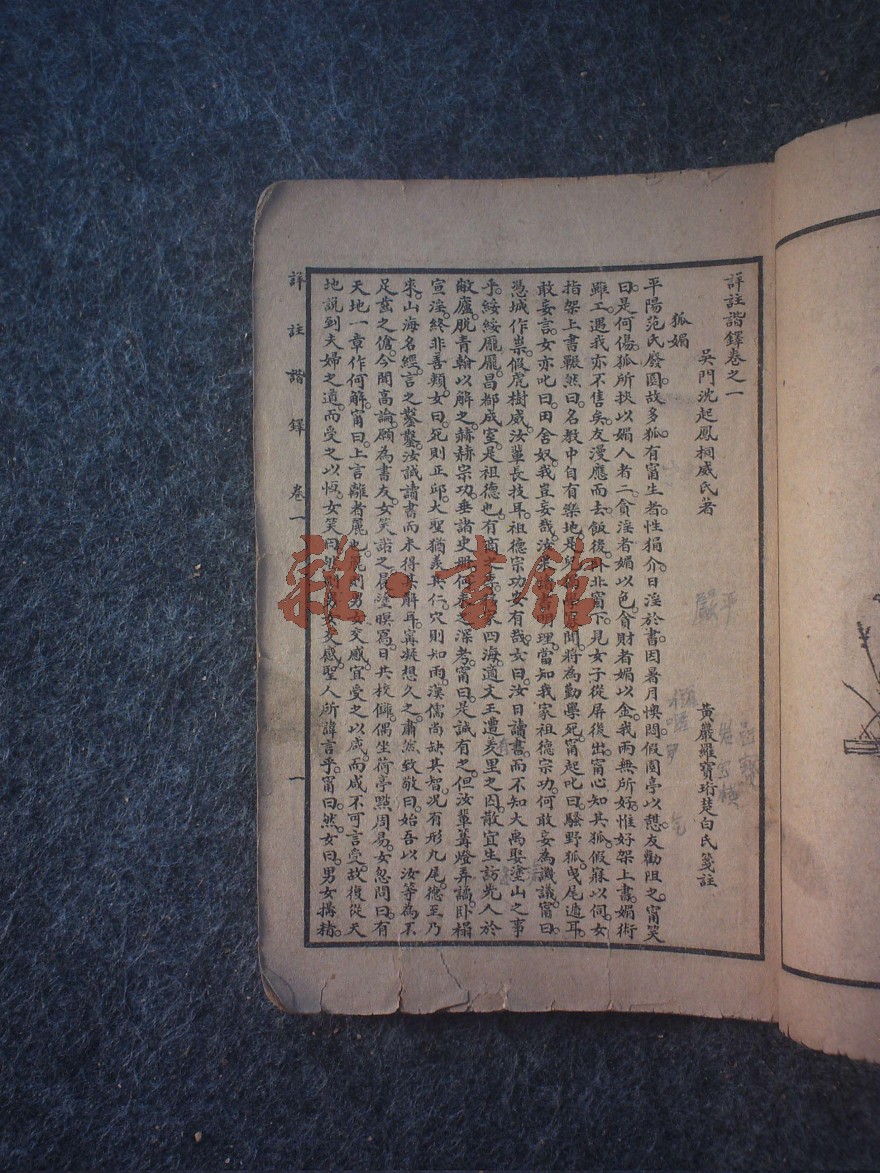 詳註諧鐸卷之一
吳門沈起鳳桐威氏著　黃巖羅寶珩楚白氏箋註
狐媚
平陽范氏廢園。故多狐。有甯生者。性狷介。日淫於書。因暑月懊悶。假園亭以憩。友勸阻之。甯笑
曰。是何傷。狐所挾以媚人者二。貪淫者媚以色。貪財者媚以金。我兩無所好。惟好架上書。媚術
雖工。遇我亦不售矣。友漫應而去。飯後。北窗下。見女子從屏後出。甯心知其狐。假寐以伺。女
指架上書。囅然曰。名教中自有樂地。是將為勤學死。甯起叱曰。騷野狐。曳尾遁耳。
敢妄言。女亦叱曰。田舍奴。我豈妄哉。汝明理。當知我家祖德宗功。何敢妄為譏議。甯曰。
憑城作祟。假虎樹威。汝輩長技耳。祖德宗功安有哉。女曰。汝日讀書。而不知大禹娶塗山之事
乎。綏綏厖厖。昌都成室。是祖德也。有商之四海。適文王遭羑里之囚。散宜生訪先人於
敝廬。脫青翰以解之。赫赫宗功。垂諸史冊。何之深考。甯曰。是誠有之。但汝輩篝燈弄譎。卧榻
宣淫。終非善類。女曰。死則正邱。大聖猶羨其仁。穴則知雨。漢儒尚缺其智。況有形九尾。德至乃
來。山海名經。言之鑿鑿。汝誠讀書而未得其解耳。甯凝想久之。肅然致敬曰。始吾以汝等為不
足齒之傖。今聞高論。願為書友。女笑諾之。晨塗暝寫。日共校讎。偶坐荷亭。點周易。女忽問曰。有
天地一章作何解。甯曰。上言離者麗也。麗則男女交感。宜受之以咸。而咸不可言受。故復從天
地說到夫婦之道。而受之以恆。女笑曰。然則男女交感。聖人所諱言乎。甯曰。然。女曰。男女搆精。
詳註諧鐸　卷一　一
雜·書館